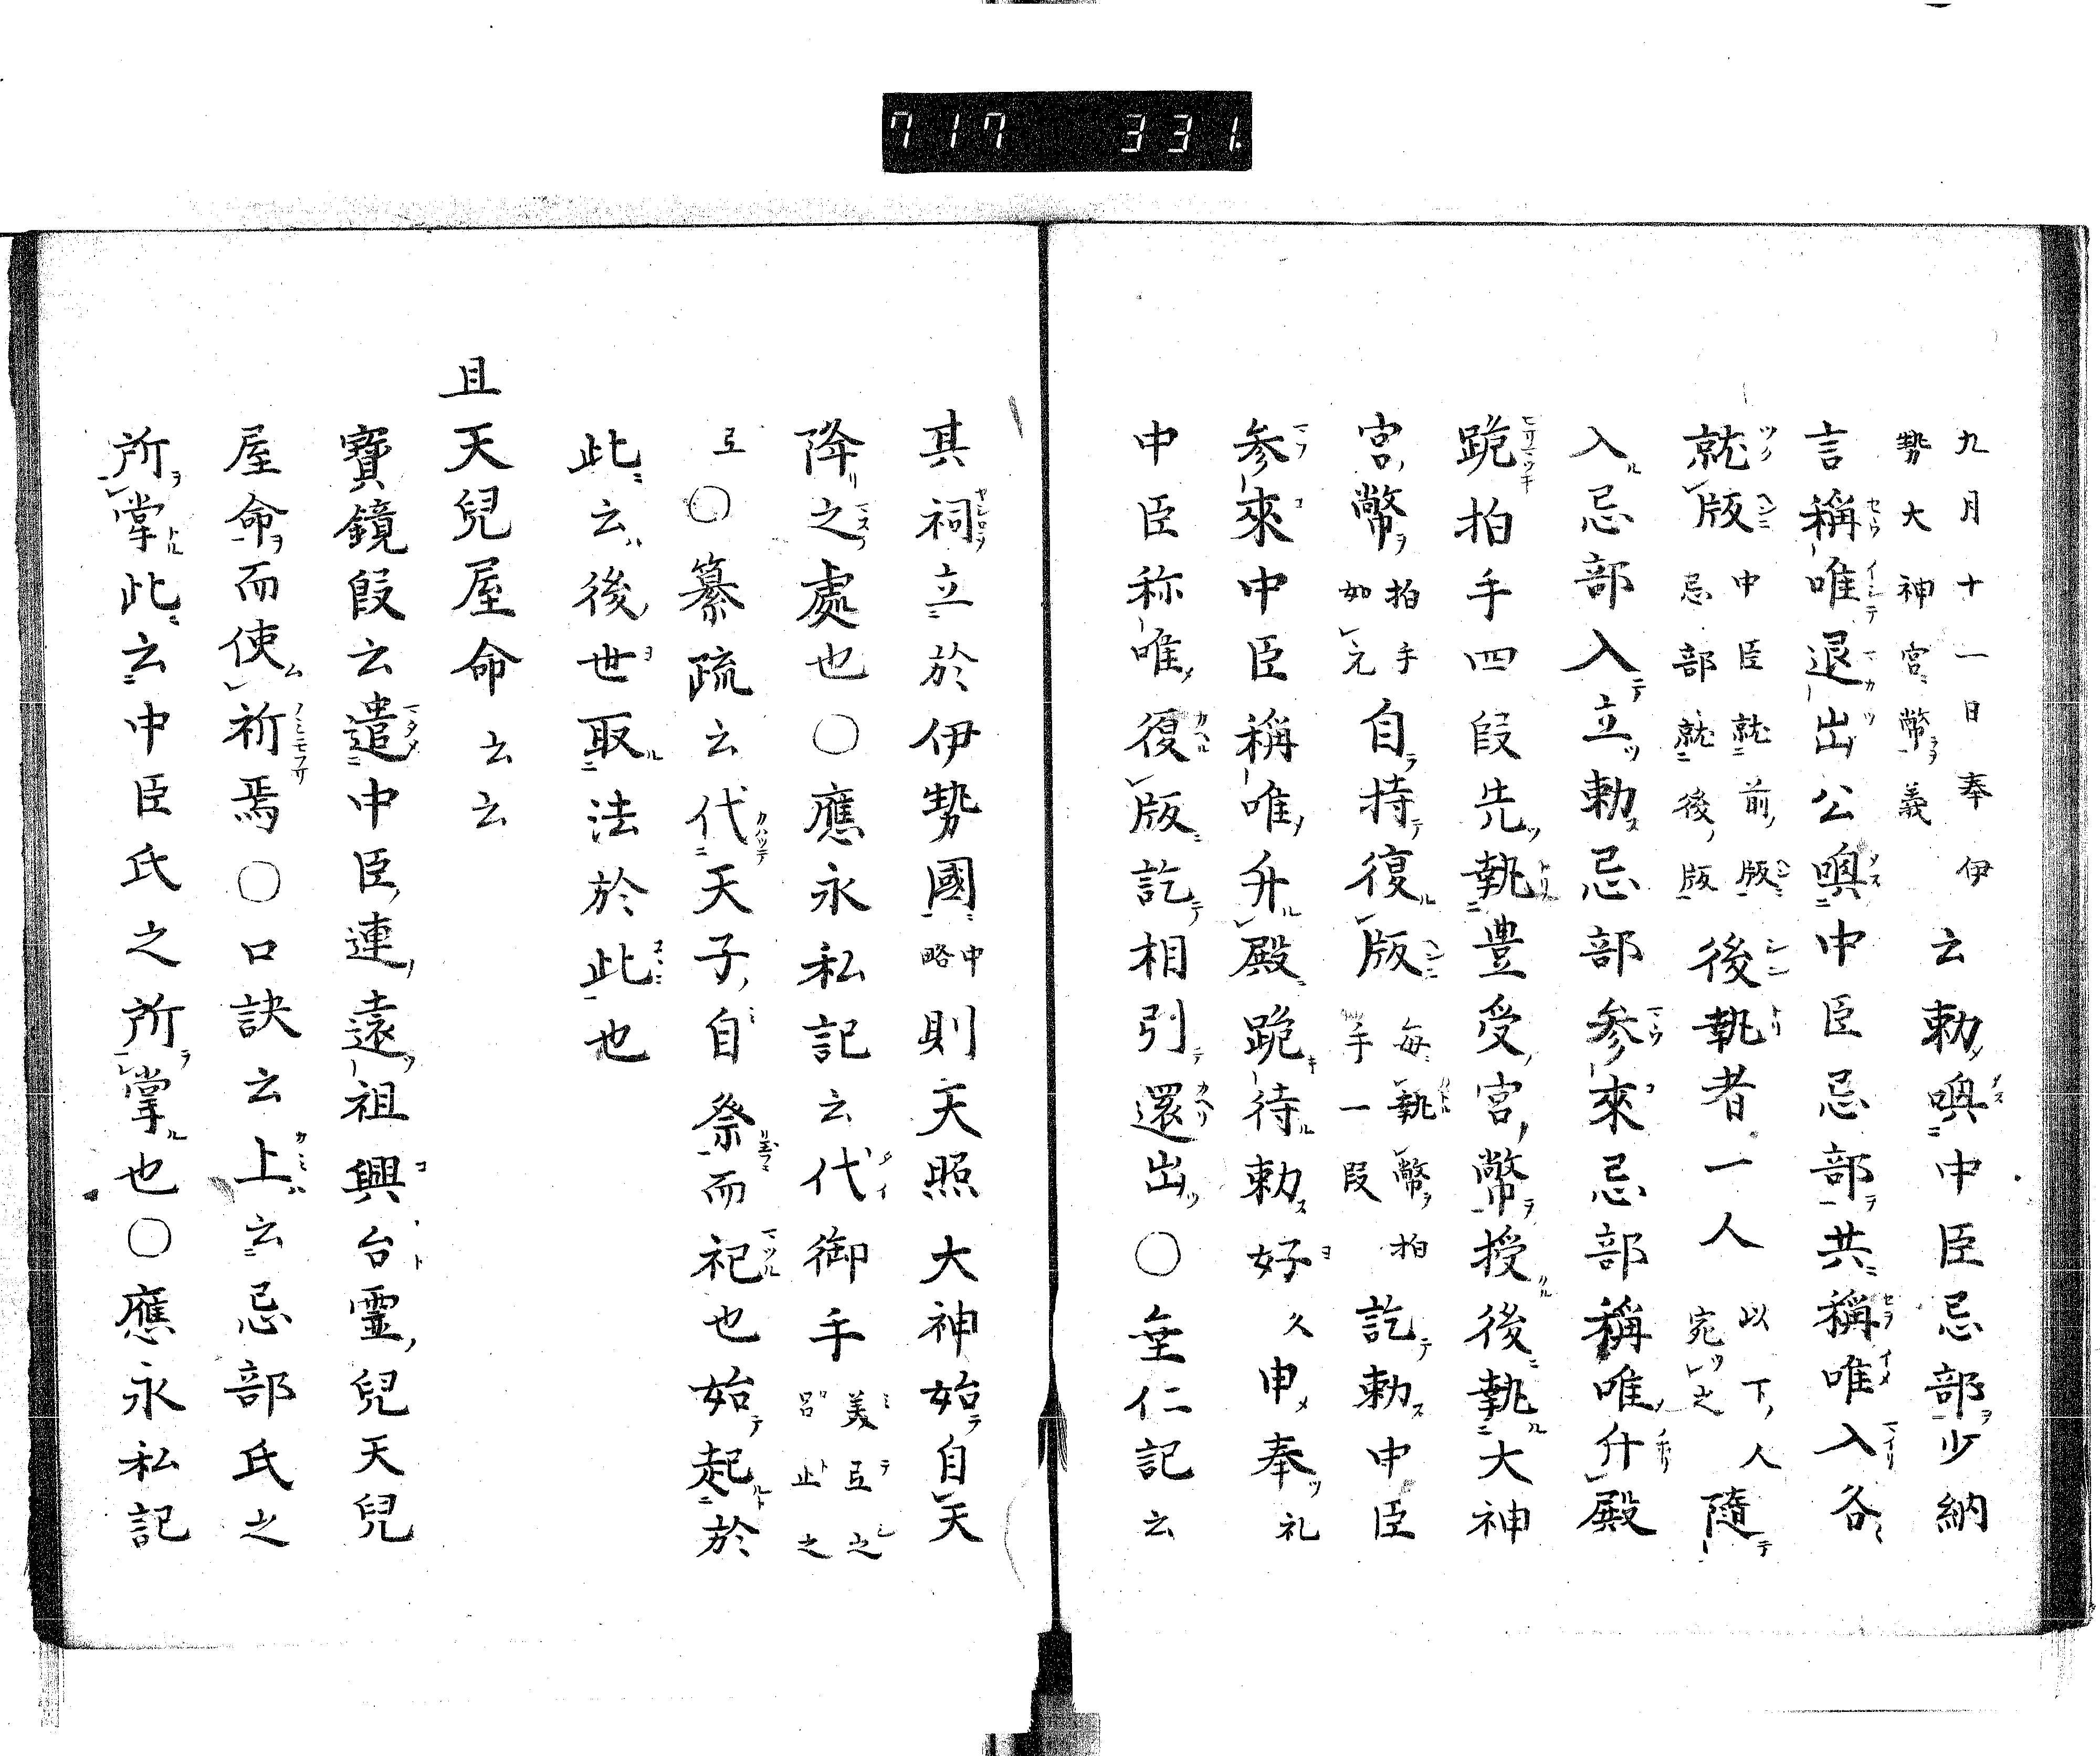 717 331
九月十一日奉伊勢大神宮幣義云勅喚中臣忌部少納
言稱唯退出公喚中臣忌部共稱唯入各
就版中臣就前版忌部就後版後執者一人以下人宛之隨
入忌部入立勅忌部参來忌部稱唯升殿
跪拍手四段先執豊受宮幣授後執大神
宮幣拍手如元自持復版毎執幣拍手一段訖勅中臣
参來中臣稱唯升殿跪待勅好久申奉礼
中臣称唯復版訖相引還出〇垂仁記云
其祠立於伊勢國中略則天照大神始自天
降之處也〇應永私記云代御手美弖之呂止之
弖〇纂疏云代天子自祭而祀也始起於
此云後世取法於此也
且天兒屋命云云
寶鏡段云遣中臣連遠祖興台霊兒天兒
屋命而使祈焉〇口訣云上云忌部氏之
所掌此云中臣氏之所掌也〇應永私記